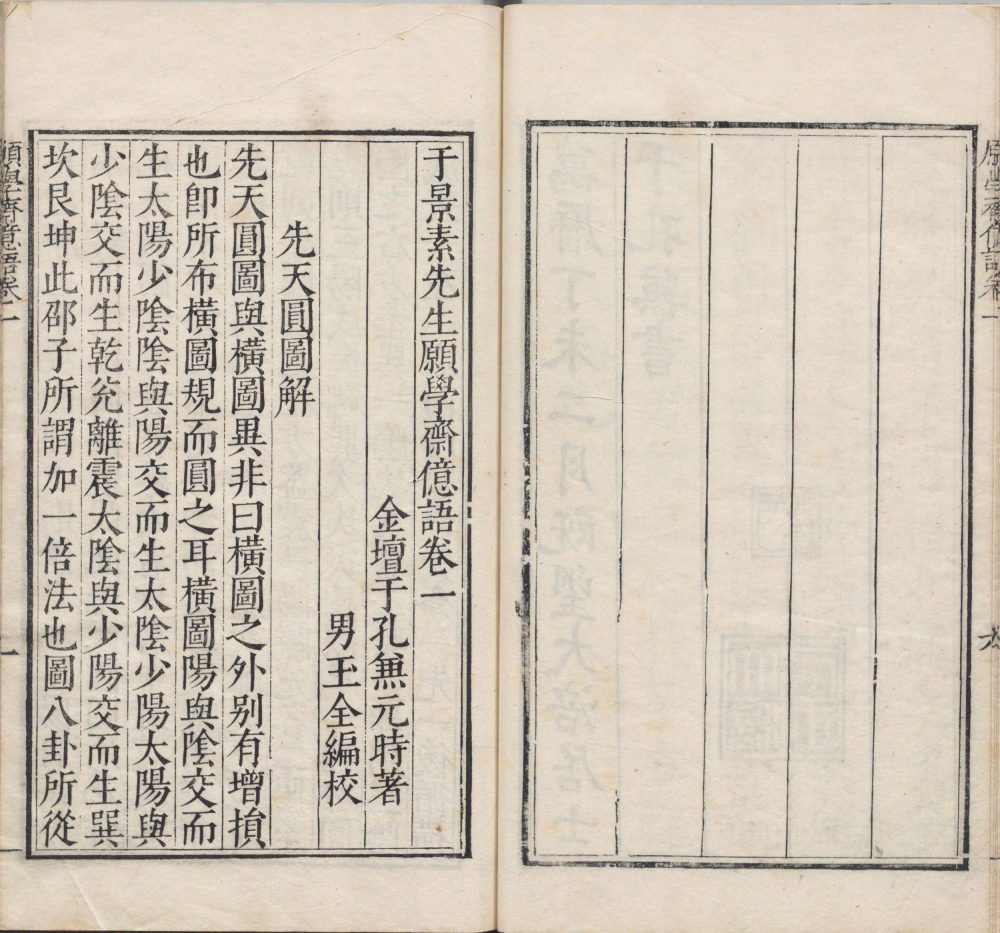 于景素先生願學齋億語卷一
金壇于孔兼元時著
男玉全編校
先天圓圖解
先天圓圖與橫圖異非曰橫圖之外别有增損
也卽所布橫圖規而圓之耳橫圖陽與陰交而
生太陽少陰陰與陽交而生太陰少陽太陽與
少陰交而生乾兊離震太陰與少陽交而生巽
坎艮坤此邵子所謂加一倍法也圖八卦所從
願學齋億語卷一
一